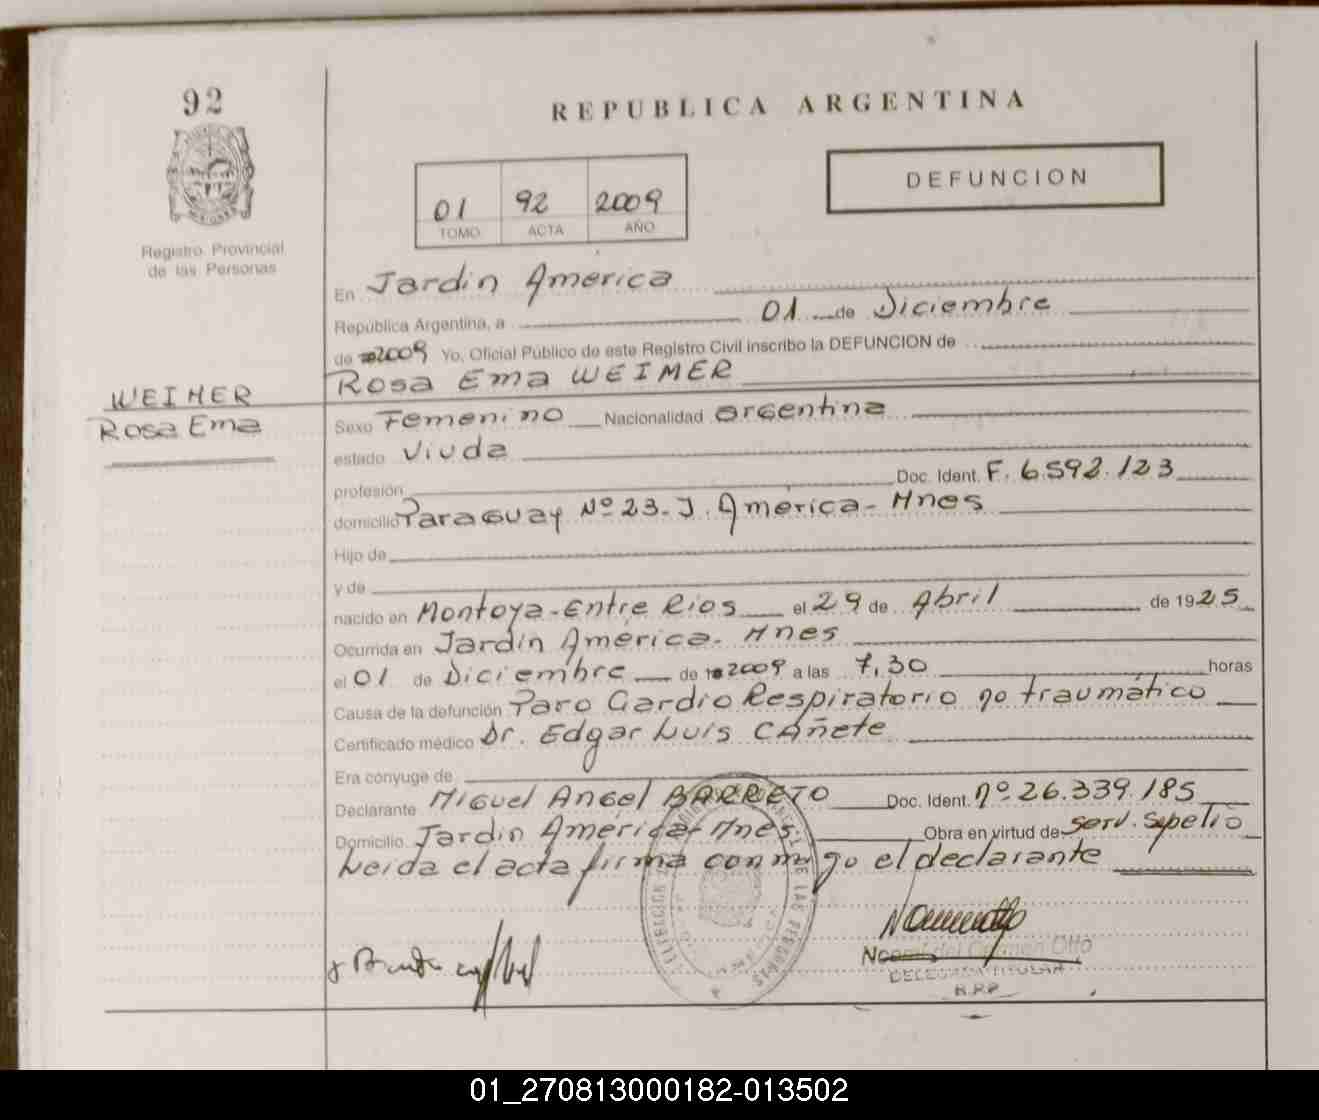 92
REPUBLICA ARGENTINA
DEFUNCION
01 92 2009
TOMO ACTA AÑO
Registro Provincial
de las Personas
En Jardin America
República Argentina, a 01 de Diciembre
de 2009 Yo, Oficial Público de este Registro Civil inscribo la DEFUNCION de
Rosa Ema WEIMER
WEIMER
Rosa Ema
Sexo Femenino Nacionalidad argentina
estado Viuda
profesión Doc. Ident. F. 6.592.123
domicilio Paraguay Nº 23- J. América- Mnes
Hijo de
y de
nacido en Montoya-Entre Rios el 29 de Abril de 1925
Ocurrida en Jardín América- Mnes
el 01 de Diciembre de 2009 a las 7,30 horas
Causa de la defunción Paro Cardio Respiratorio no traumático
Certificado médico Dr. Edgar Luis CAñete
Era conyuge de
Declarante Miguel Angel BARRETO Doc. Ident. nº 26.339.185
Domicilio Jardin América- Mnes. Obra en virtud de serv. Sepelio
Leida el acta firma conmigo el declarante
del Carmen Otto
DELEGADA TITULAR
R.P.P
01_270813000182-013502